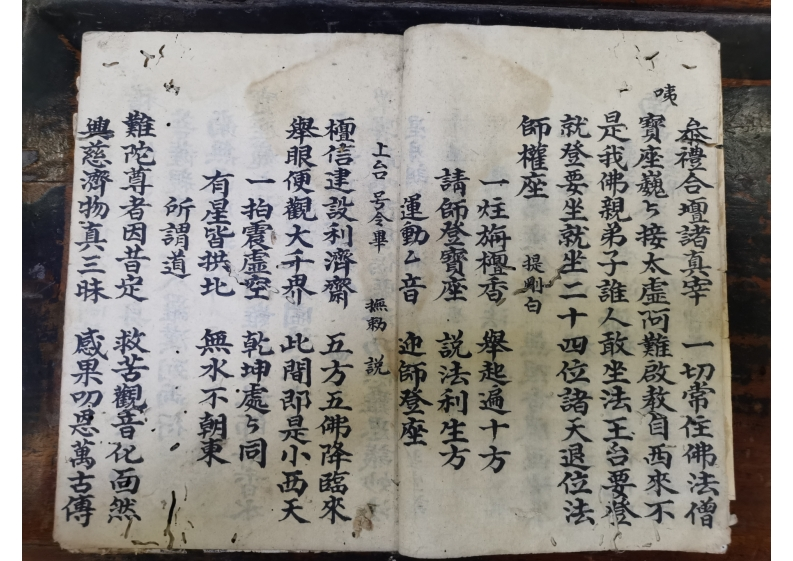 叅禮合壇諸真宰　一切常住佛法僧
咦
寶座巍々接太虛阿難啟教自西來不
是我佛親弟子誰人敢坐法王台要登
就登要坐就坐二十四位諸天退位法
師權座　提剛白
一炷旃檀香　舉起遍十方
請師登寶座　說法利生方
運動厶音　迎師登座
上台　号令畢　撫勑　說
檀信建設利濟齋　五方五佛降臨來
舉眼便觀大千界　此間即是小西天
一拍震虛空　乾坤處々同
有星皆拱北　無水不朝東
所謂道
難陀尊者因昔定　救苦觀音化面然
興慈濟物真三昧　感果叨恩萬古傳